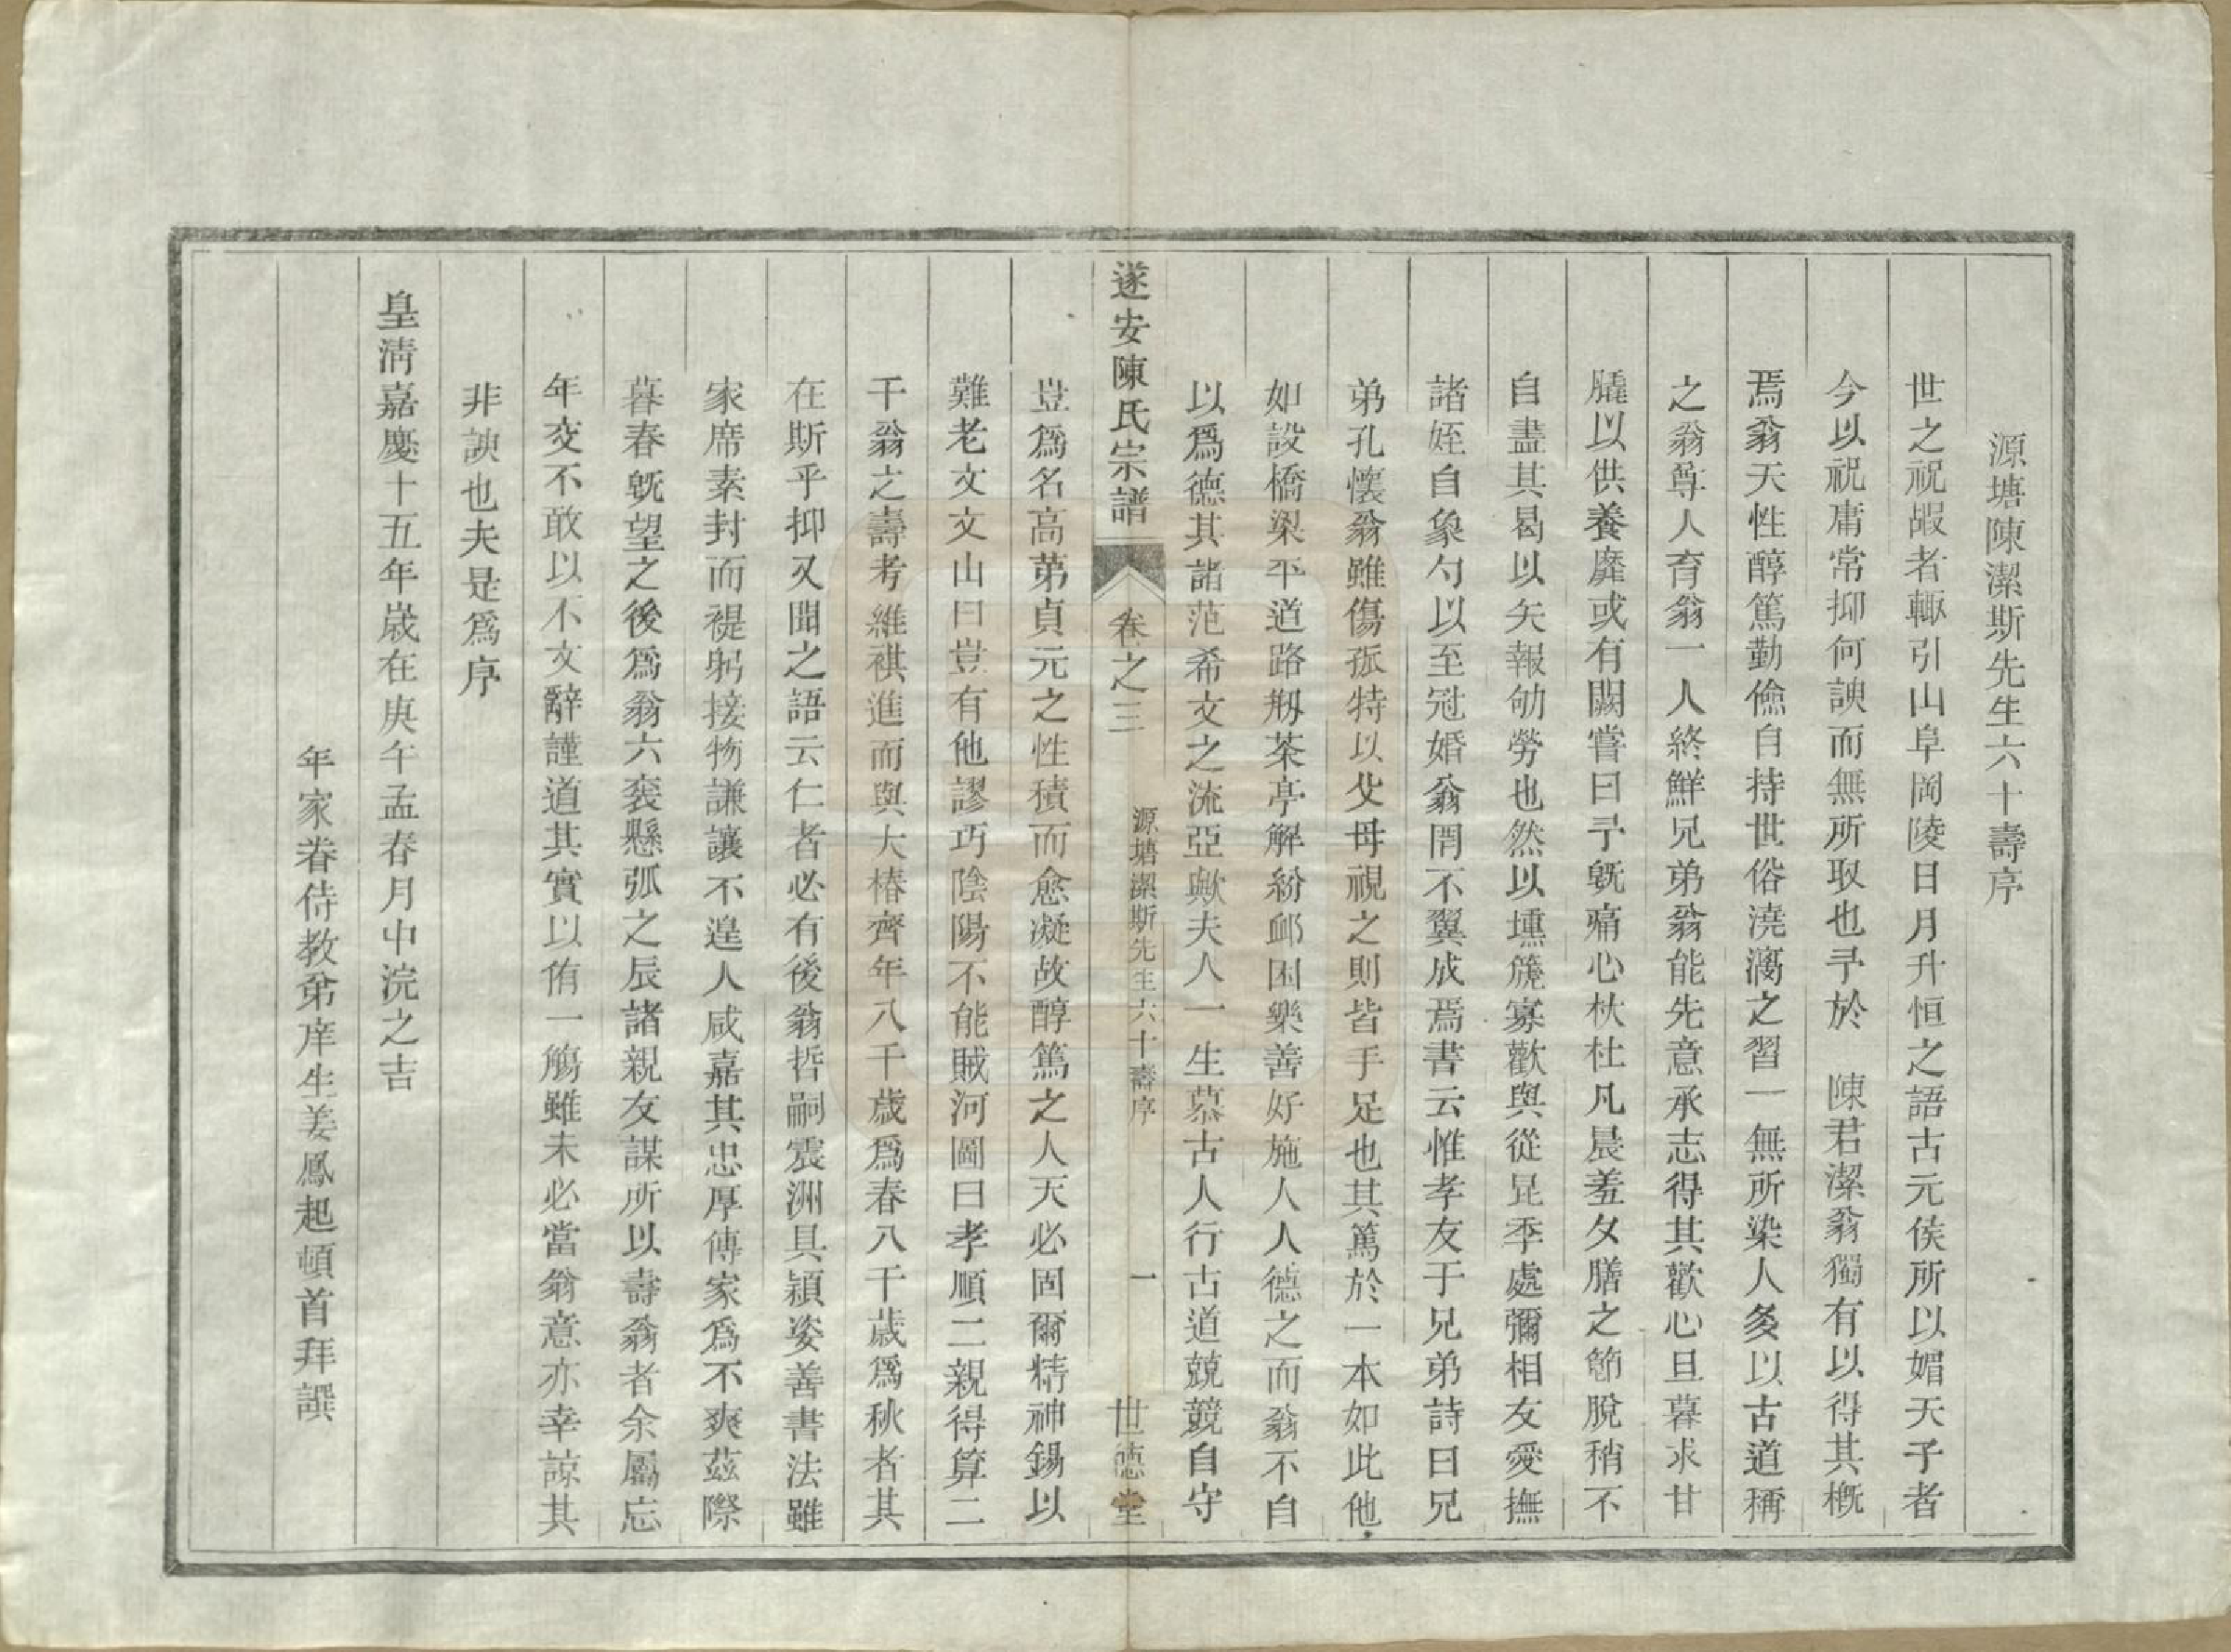 源塘陳潔斯先生六十壽序
世之祝嘏者輒引山阜岡陵日月升恒之語古元侯所以媚天子者
今以祝庸常抑何諛而無所取也予於　陳君潔翁獨有以得其槪
焉翁天性醇篤勤儉自持世俗澆漓之習一無所染人多以古道稱
之翁尊人育翁一人終鮮兄弟翁能先意承志得其歡心旦暮求甘
膬以供養靡或有闕嘗曰予旣痛心杕杜凡晨羞夕膳之節脫稍不
自盡其曷以矢報劬勞也然以壎篪寡歡與從昆季處彌相友愛撫
諸姪自象勺以至冠婚翁罔不翼成焉書云惟孝友于兄弟詩曰兄
弟孔懷翁雖傷孤特以父母視之則皆手足也其篤於一本如此他
如設橋梁平道路剏茶亭解紛卹困樂善好施人人德之而翁不自
以爲德其諸范希文之流亞歟夫人一生慕古人行古道兢兢自守
遂安陳氏宗譜　卷之三　源塘潔斯先生六十壽序　一　世德堂
豈爲名高第貞元之性積而愈凝故醇篤之人天必固爾精神錫以
難老文文山曰豈有他謬巧陰陽不能賊河圖曰孝順二親得算二
千翁之壽考維祺進而與大椿齊年八千歲爲春八千歲爲秋者其
在斯乎抑又聞之語云仁者必有後翁哲嗣震洲具穎姿善書法雖
家席素封而褆躬接物謙讓不遑人咸嘉其忠厚傳家爲不爽茲際
暮春旣望之後爲翁六袠懸弧之辰諸親友謀所以壽翁者余屬忘
年交不敢以不文辭謹道其實以侑一觴雖未必當翁意亦幸諒其
非諛也夫是爲序
皇淸嘉慶十五年歲在庚午孟春月中浣之吉
年家眷侍教弟庠生姜鳳起頓首拜譔